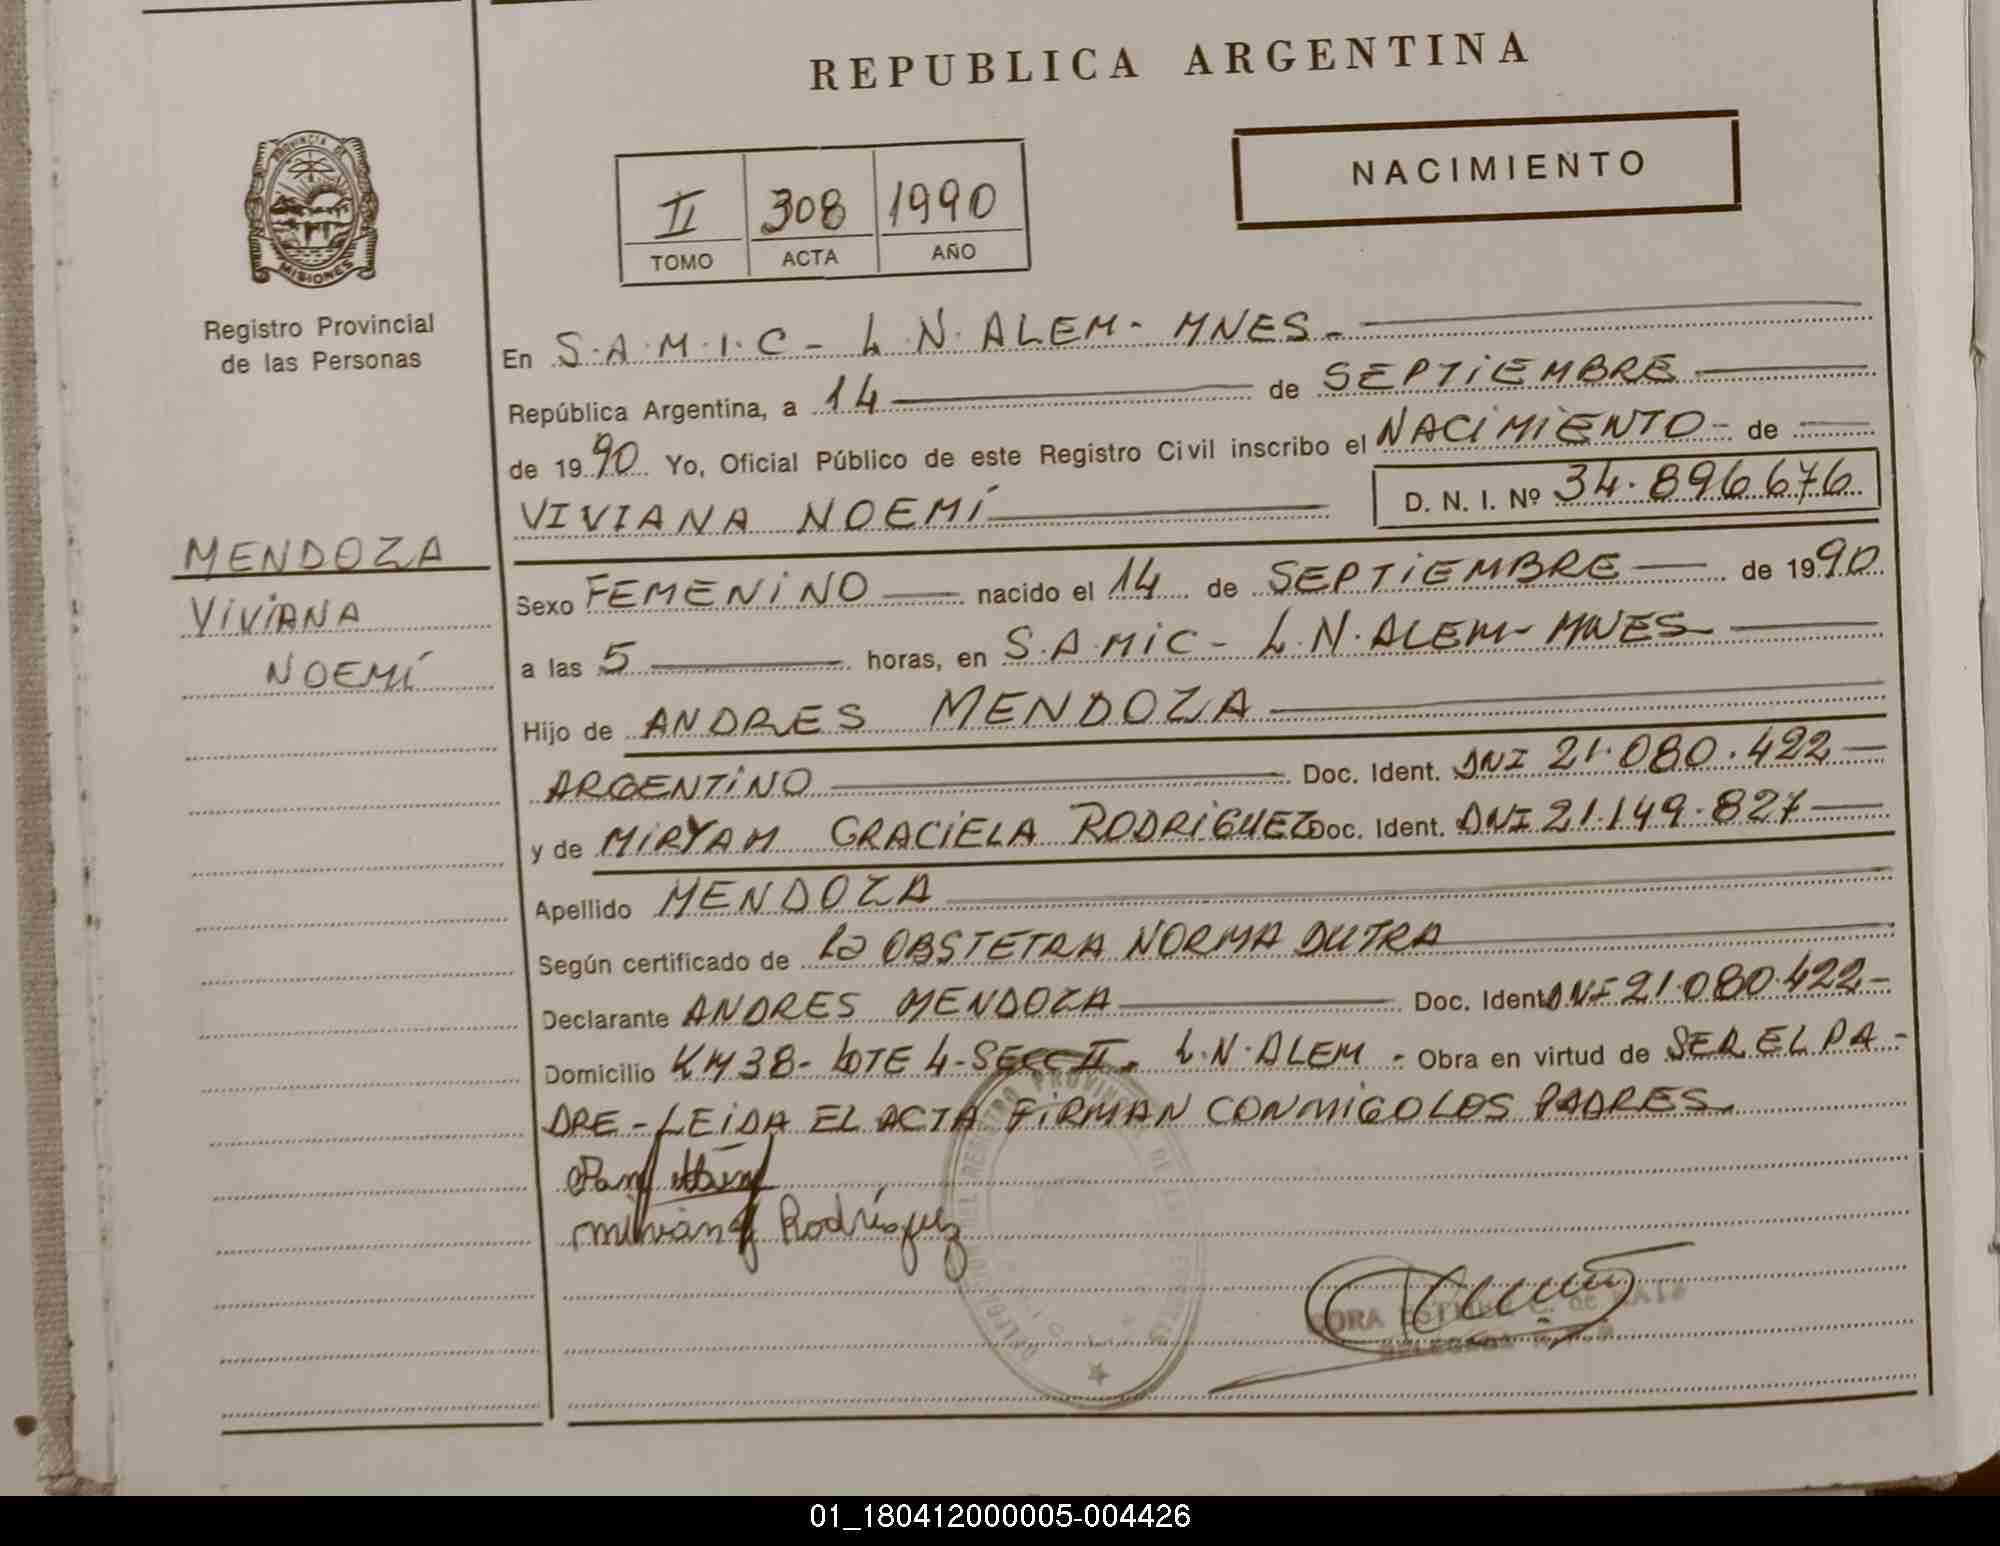 REPUBLICA ARGENTINA
PROVINCIA DE
MISIONES
Registro Provincial
de las Personas
NACIMIENTO
II 308 1990
TOMO ACTA AÑO
En S.A.M.I.C - L.N. ALEM - MNES -
República Argentina, a 14 de SEPTIEMBRE
de 1990 Yo, Oficial Público de este Registro Civil inscribo el NACIMIENTO - de
VIVIANA NOEMÍ D. N. I. Nº 34.896676
MENDOZA
VIVIANA
NOEMÍ
Sexo FEMENINO nacido el 14 de SEPTIEMBRE de 1990
a las 5 horas, en S.A.MIC - L.N. ALEM - MNES
Hijo de ANDRES MENDOZA
ARGENTINO Doc. Ident. DNI 21.080.422
y de MIRYAM GRACIELA RODRIGUEZ Doc. Ident. DNI 21.149.827
Apellido MENDOZA
Según certificado de la OBSTETRA NORMA DUTRA
Declarante ANDRES MENDOZA Doc. Ident DNI 21.080.422 -
Domicilio KM 38 - LOTE 4 - SECC II - L.N. ALEM - Obra en virtud de SER EL PA -
DRE - LEIDA EL ACTA FIRMAN CONMIGO LOS PADRES
Rodríguez
REGISTRO PROVINCIAL DE LAS
CORA C. de
01_180412000005-004426